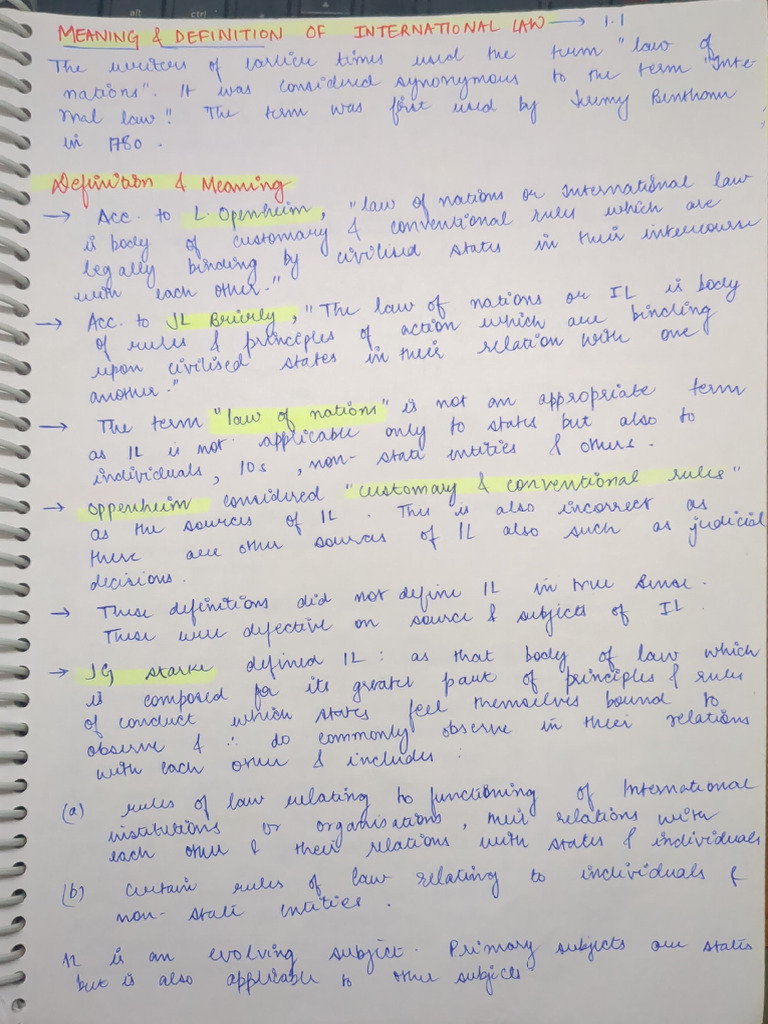 alt ctrl
MEANING & DEFINITION OF INTERNATIONAL LAW → 1.1
The writers of earlier times used the term "law of
nations". It was considered synonymous to the term "Inte-
rnal law". The term was first used by Jeremy Bentham
in 1780.
Definition & Meaning
→ Acc. to L. Openheim, "law of nations or International law
is body of customary & conventional rules which are
legally binding by civilised states in their intercourse
with each other."
→ Acc. to JL Brierly, "The law of nations or IL is body
of rules & principles of action which are binding
upon civilised states in their relation with one
another."
→ The term "law of nations" is not an appropriate term
as IL is not applicable only to states but also to
individuals, IOs, non-state entities & others.
→ Oppenheim considered "customary & conventional rules"
as the sources of IL. This is also incorrect as
there are other sources of IL also such as judicial
decisions.
→ These definitions did not define IL in true sense.
These were defective on source & subjects of IL.
→ JG Starke defined IL: as that body of law which
is composed for its greater part of principles & rules
of conduct which states feel themselves bound to
observe & ∴ do commonly observe in their relations
with each other & includes:
(a) rules of law relating to functioning of International
institutions or organisations, their relations with
each other & their relations with states & individuals
(b) Certain rules of law relating to individuals &
non-state entities.
IL is an evolving subject. Primary subjects are states
but is also applicable to other subjects"